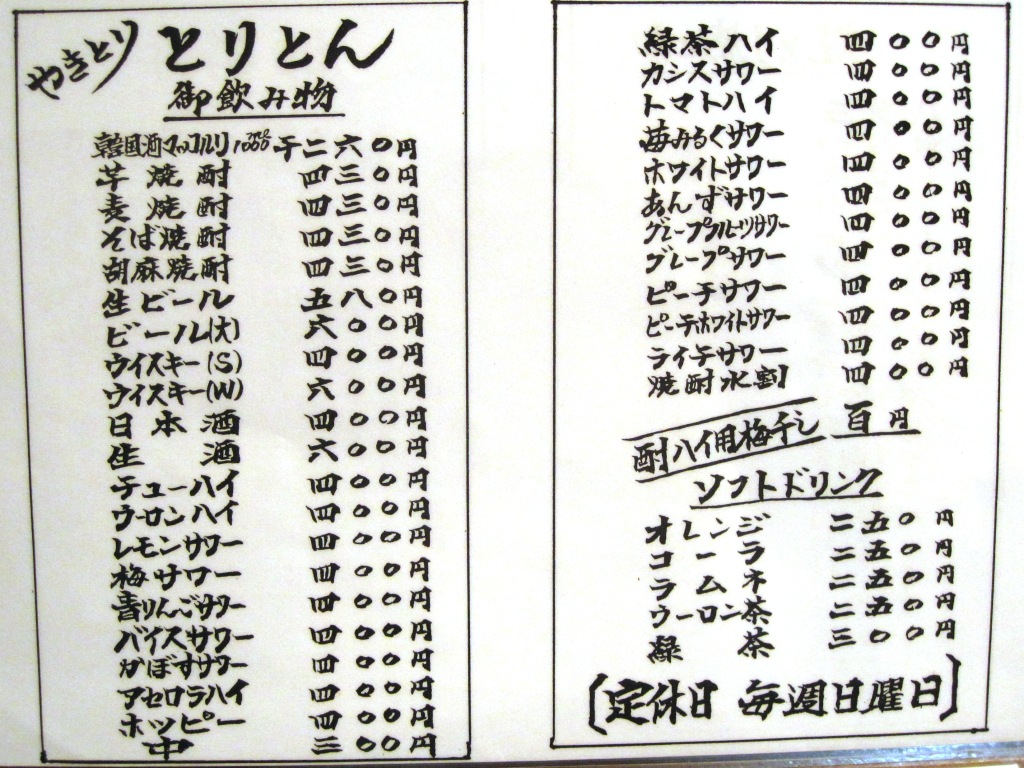 やきとり とりとん
御飲み物
韓国酒マッコルリ1000 千二六〇円
芋焼酎 四三〇円
麦焼酎 四三〇円
そば焼酎 四三〇円
胡麻焼酎 四三〇円
生ビール 五八〇円
ビール(大) 六〇〇円
ウイスキー(S) 四〇〇円
ウイスキー(W) 六〇〇円
日本酒 四〇〇円
生酒 六〇〇円
チューハイ 四〇〇円
ウーロンハイ 四〇〇円
レモンサワー 四〇〇円
梅サワー 四〇〇円
青りんごサワー 四〇〇円
バイスサワー 四〇〇円
かぼすサワー 四〇〇円
アセロラハイ 四〇〇円
ホッピー 四〇〇円
中 三〇〇円
緑茶ハイ 四〇〇円
カシスサワー 四〇〇円
トマトハイ 四〇〇円
苺みるくサワー 四〇〇円
ホワイトサワー 四〇〇円
あんずサワー 四〇〇円
グレープフルーツサワー 四〇〇円
グレープサワー 四〇〇円
ピーチサワー 四〇〇円
ピーチホワイトサワー 四〇〇円
ライチサワー 四〇〇円
焼酎水割 四〇〇円
酎ハイ用梅干し 百円
ソフトドリンク
オレンジ 二五〇円
コーラ 二五〇円
ラムネ 二五〇円
ウーロン茶 二五〇円
緑茶 三〇〇円
(定休日 毎週日曜日)